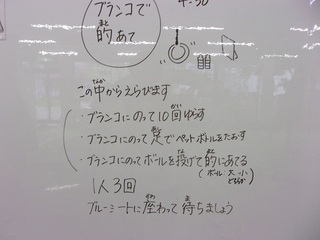 ブランコで
的あて
4-30
この中からえらびます
・ブランコにのって10回ゆらす
・ブランコにのって足でペットボトルをたおす
・ブランコにのってボールを投げて的にあてる
(ボール 大・小 どちらか)
1人3回
ブルーシートに座わって待ちましょう